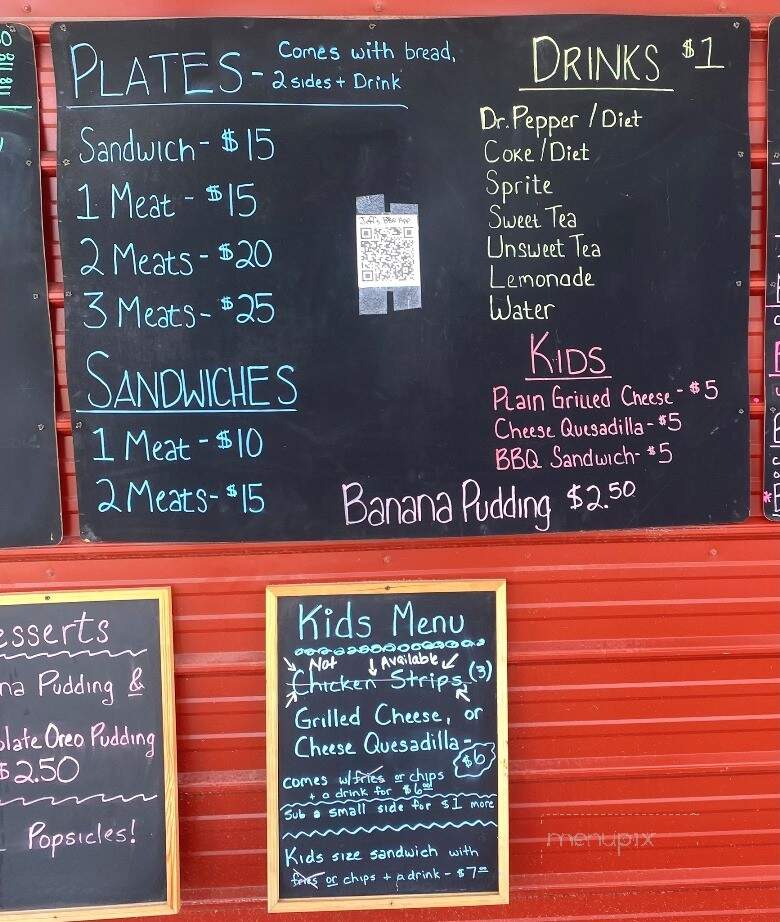 PLATES - Comes with bread,
2 sides + Drink
Sandwich - $15
1 Meat - $15
2 Meats - $20
3 Meats - $25
SANDWICHES
1 Meat - $10
2 Meats - $15
DRINKS $1
Dr. Pepper / Diet
Coke / Diet
Sprite
Sweet Tea
Unsweet Tea
Lemonade
Water
KIDS
Plain Grilled Cheese - $5
Cheese Quesadilla - $5
BBQ Sandwich - $5
Banana Pudding $2.50
esserts
na Pudding &
olate Oreo Pudding
$2.50
Popsicles!
Kids Menu
Not Available
Chicken Strips (3)
Grilled Cheese, or
Cheese Quesadilla -
$6
comes w/fries or chips
+ a drink for $6.00
Sub a small side for $1 more
Kids size sandwich with
fries or chips + a drink - $7.00
menupix